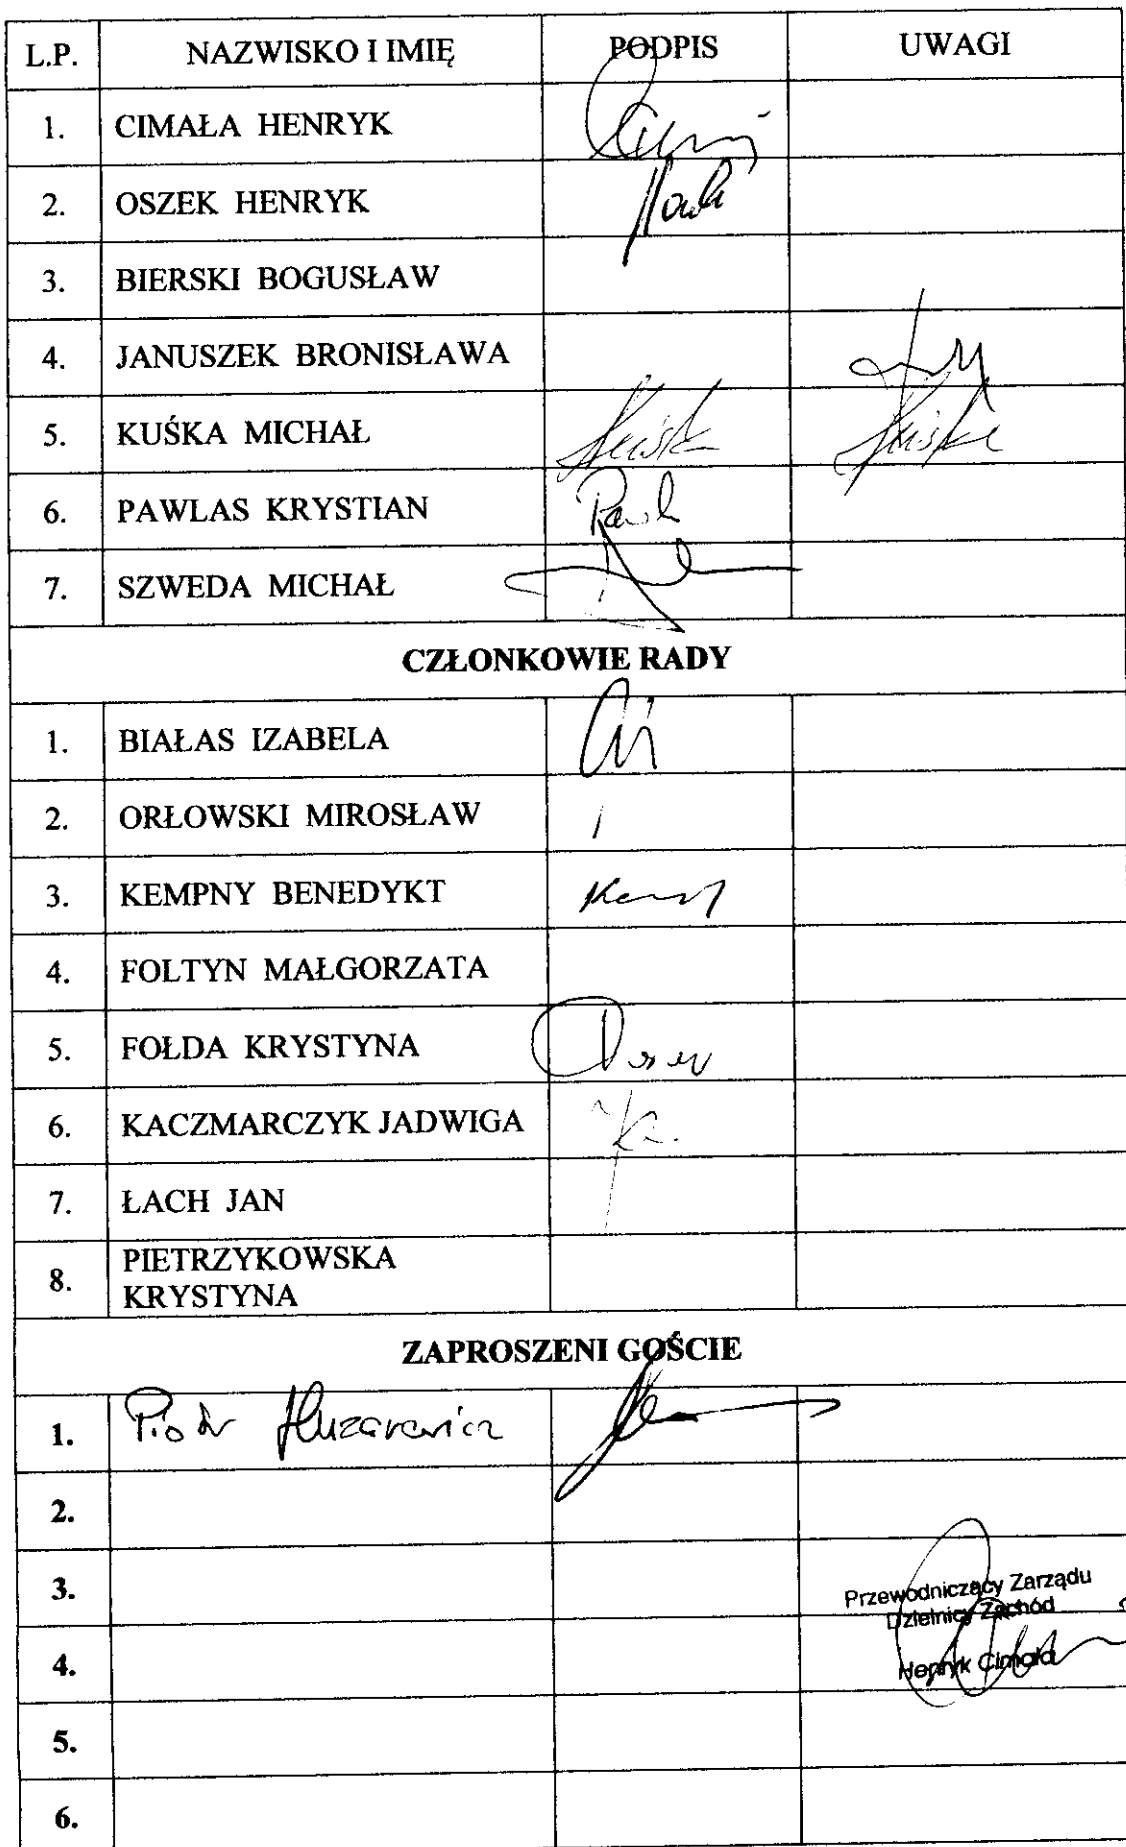 L.P. NAZWISKO I IMIĘ PODPIS UWAGI
1. CIMAŁA HENRYK
2. OSZEK HENRYK
3. BIERSKI BOGUSŁAW
4. JANUSZEK BRONISŁAWA
5. KUŚKA MICHAŁ Kuśka Kuśka
6. PAWLAS KRYSTIAN
7. SZWEDA MICHAŁ
CZŁONKOWIE RADY
1. BIAŁAS IZABELA
2. ORŁOWSKI MIROSŁAW
3. KEMPNY BENEDYKT
4. FOLTYN MAŁGORZATA
5. FOŁDA KRYSTYNA
6. KACZMARCZYK JADWIGA
7. ŁACH JAN
8. PIETRZYKOWSKA
KRYSTYNA
ZAPROSZENI GOŚCIE
1. Piotr Huzarewicz
2.
3.
Przewodniczący Zarządu
Dzielnicy Zachód
4.
Henryk Cimała
5.
6.